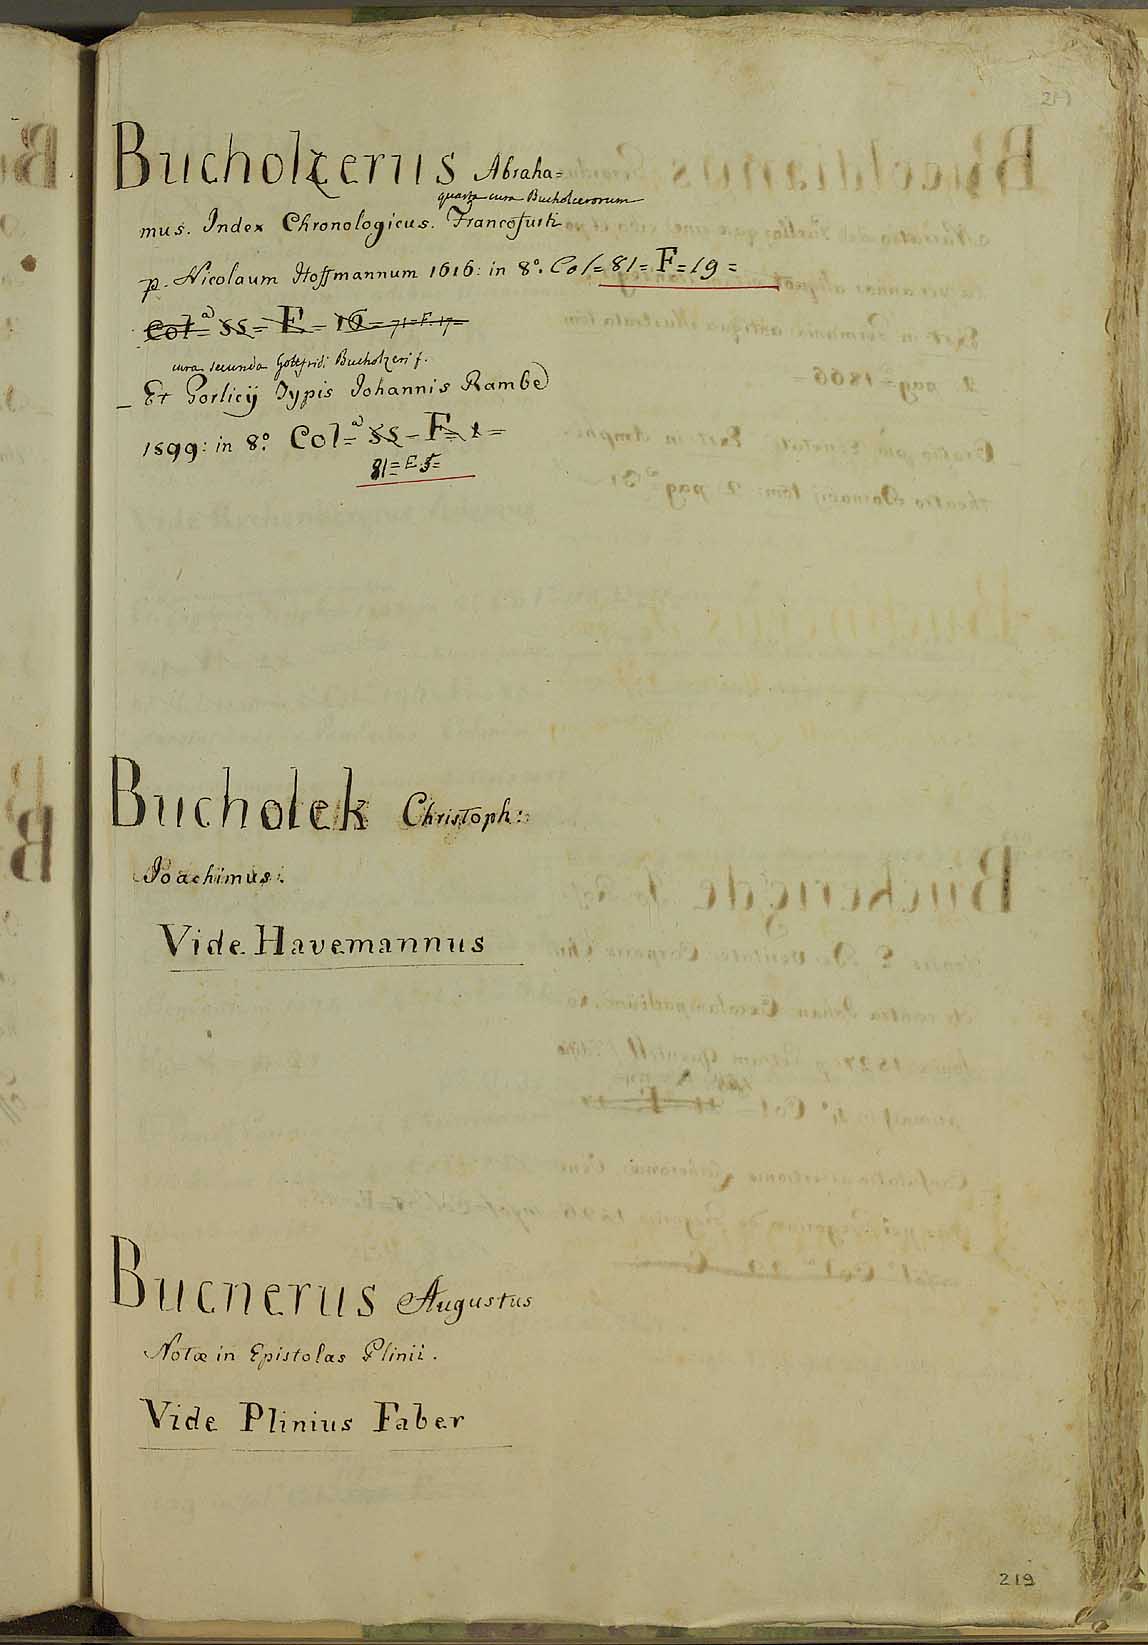 219
Bucholzerus Abraha=
quarta cura Bucholcerorum
mus. Index Chronologicus. Francofurti
p. Nicolaum Hoffmannum 1616: in 8°. Col= 81= F= 19=
Col=ª 55= F= 16= 71= F. 17=
cura secunda Gottfridi Bucholzeri f.
_ Et Gorlicij Typis Iohannis Rambe
1599: in 8°. Col=ª 55= F= 1=
81= E. 5=
Bucholek Christoph:
Ioachimus:
Vide Havemannus
Bucnerus Augustus
Notæ in Epistolas Plinii.
Vide Plinius Faber
219